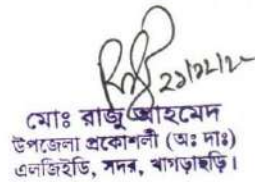 ২১/১২/২০
মোঃ রাজু আহমেদ
উপজেলা প্রকৌশলী (অঃ দাঃ)
এলজিইডি, সদর, খাগড়াছড়ি।